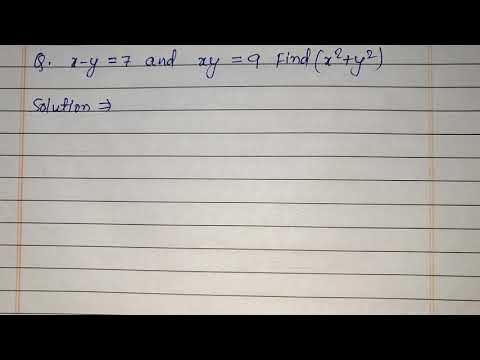 Q. x-y = 7 and xy = 9 Find (x²+y²)
Solution ⇒